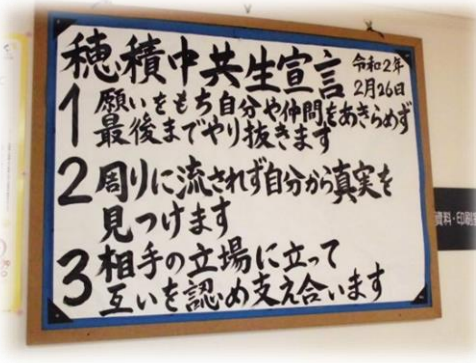 穂積中共生宣言
令和2年
2月26日
1 願いをもち自分や仲間をあきらめず
最後までやり抜きます
2 周りに流されず自分から真実を
見つけます
3 相手の立場に立って
互いを認め支え合います
資料・印刷